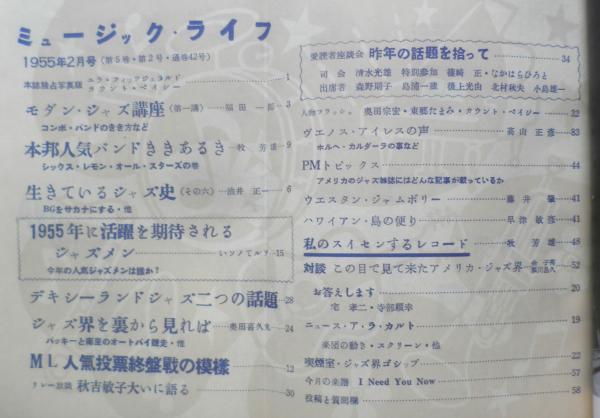 ミュージック・ライフ
1955年2月号（第5巻・第2号・通巻42号）
本誌独占写真版 エラ・フィッツジェラルド カウント・ベイシー 1
モダン・ジャズ講座（第一講） 福田一郎 3
コンボ・バンドのきき方など
本邦人気バンドききあるき 牧芳雄 9
シックス・レモン・オール・スターズの巻
生きているジャズ史（その六） 油井正一 6
BGをサカナにする・他
1955年に活躍を期待される
ジャズメン いソノてルヲ 15
今年の人気ジャズメンは誰か？
デキシーランドジャズ二つの話題 28
ジャズ界を裏から見れば 奥田喜久丸 24
バッキーと南里のオートバイ競走・他
ML人氣投票終盤戦の模様 12
リレー放談 秋吉敏子大いに語る 30
愛讀者座談会 昨年の話題を拾って 34
司会 清水光雄 特別参加 篠崎正・なかはらひろと
出席者 森野朔子 島浦一雄 後上光由 北村秋夫 小島雄一
人物フラッシュ 奥田宗宏・東郷たまみ・カウント・ベイシー 32
ヴエノス・アイレスの声 高山正彦 83
ホルヘ・カルダーラの事など
PMトピックス 44
アメリカのジャズ雑誌にはどんな記事が載っているか
ウエスタン・ジャムボリー 藤井肇 41
ハワイアン・島の便り 早津敏彦 41
私のスイセンするレコード 牧芳雄 48
対談 この目で見て来たアメリカ・ジャズ界 52
お答えします 20
宅孝二・寺部頼幸
ニュース・ア・ラ・カルト 19
楽団の動き・スクリーン・他
喫煙室・ジャズ界ゴシップ 22
今月の楽譜 I Need You Now 57
投稿と質問欄 58